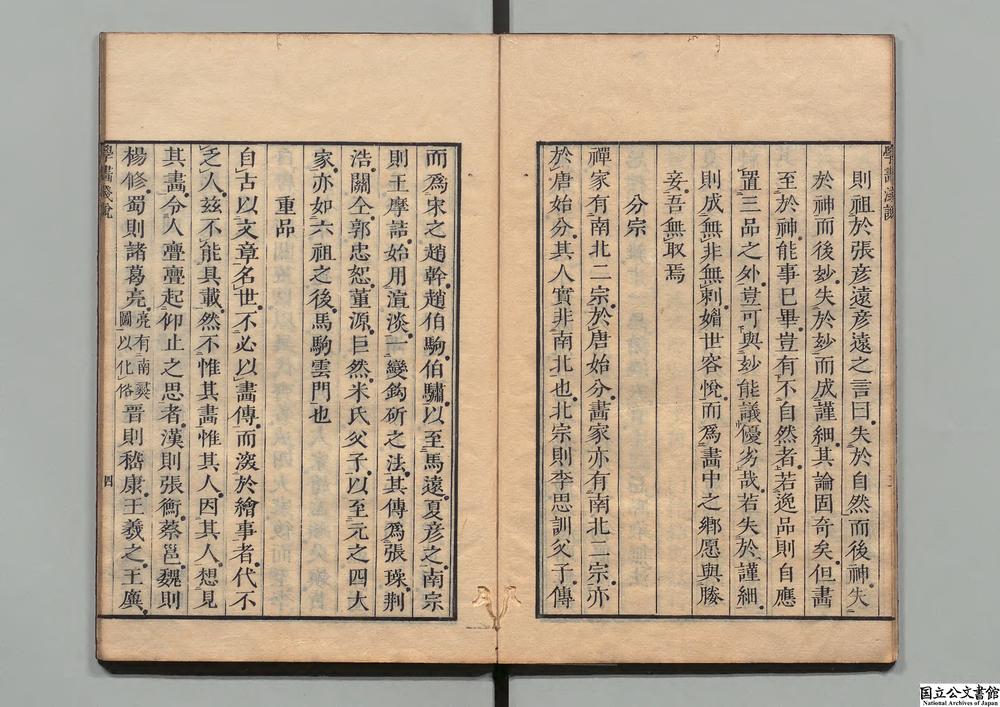 學畫淺說
則祖於張彥遠彥遠之言曰失於自然而後神失
於神而後妙失於妙而成謹細其論固奇矣但畫
至於神能事已畢豈有不自然者若逸品則自應
置三品之外豈可與妙能議優劣哉若失於謹細
則成無非無刺媚世容悅而爲畫中之鄉愿與媵
妾吾無取焉
分宗
禪家有南北二宗於唐始分畫家亦有南北二宗亦
於唐始分其人實非南北也北宗則李思訓父子傳
三
而爲宋之趙幹趙伯駒伯驌以至馬遠夏彥之南宗
則王摩詰始用渲淡一變鈎斫之法其傳爲張璪荆
浩關仝郭忠恕董源巨然米氏父子以至元之四大
家亦如六祖之後馬駒雲門也
重品
自古以文章名世不必以畫傳而深於繪事者代不
乏人茲不能具載然不惟其畫惟其人因其人想見
其畫令人亹亹起仰止之思者漢則張衡蔡邕魏則
楊修蜀則諸葛亮亮有南夷圖以化俗晉則嵇康王羲之王廙
學畫淺說
四
国立公文書館
National Archives of Japan